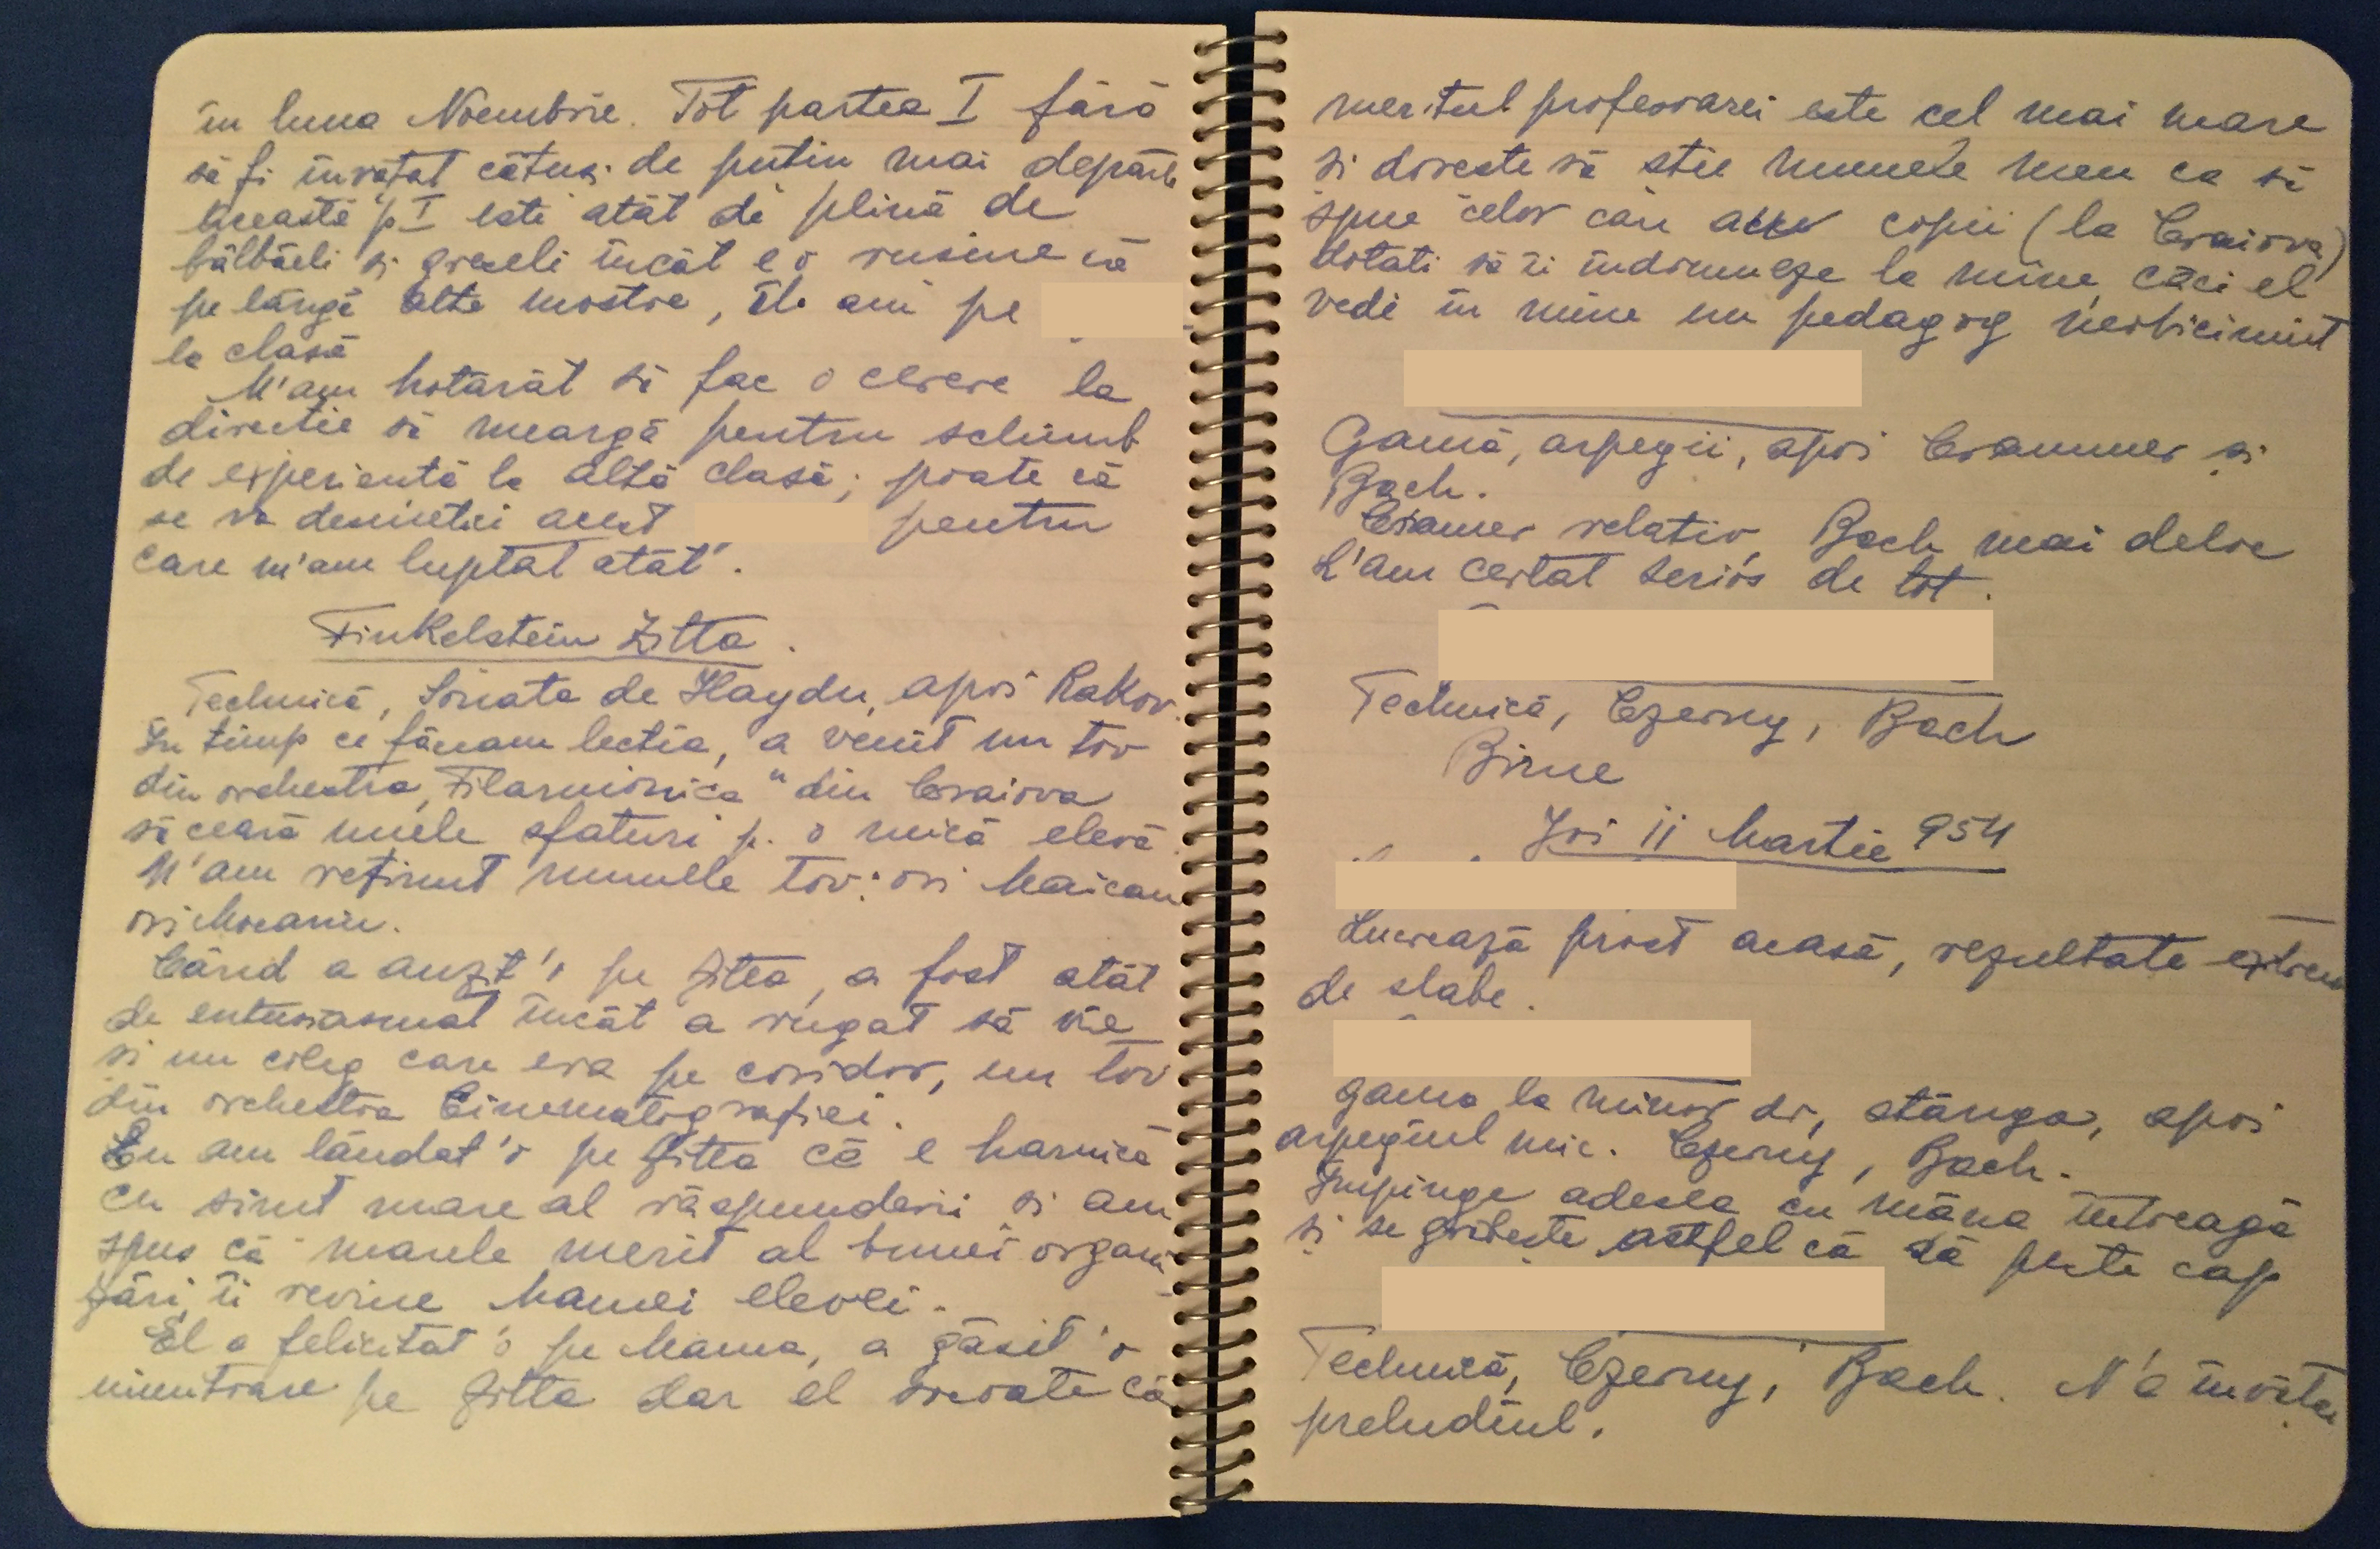 în luna Noembrie. Tot partea I fără
să fi învățat cătuși de puțin mai departe
Această p I este atât de plină de
bâlbâeli și greșeli încât e o rusine că
pe lângă alte mostre, îl am pe
la clasă
M'am hotărât să fac o cerere la
direcție să meargă pentru schimb
de experiență la altă clasă; poate că
se va desmetici acest pentru
care m'am luptat atât.
Finkelstein Zitta.
Technică, Sonata de Haydn, apoi Rakov.
În timp ce făceam lecția, a venit un tov
din orchestra „Filarmonica" din Craiova
să ceară unele sfaturi p. o mică elevă.
N'am reținut numele tov: ori Maican
ori Mocanu.
Când a auzit'o pe Zitta, a fost atât
de entusiasmat încât a rugat să vie
și un coleg care era pe coridor, un tov
din orchestra Cinematografiei.
Eu am lăudat'o pe Zitta că e harnică
cu simt mare al răspunderii și am
spus că marele merit al bunei organi
zări, îi revine Mamei elevei.
El a felicitat'o pe Mama, a găsit'o
uimitoare pe Zitta dar el socoate că
meritul profesoarei este cel mai mare
si doreste să stie numele meu ca să
spue celor cari au copii (la Craiova)
dotati să-i îndrumeze la mine, căci el
vede în mine un pedagog neobicinuit
Gamă, arpegii, apoi Crammer și
Bach.
Cramer relativ, Bach mai deloc
L'am certat serios de tot.
Technică, Czerny, Bach
Bine
Joi 11 Martie 954
Lucrează prost acasă, rezultate extrem
de slabe.
gama la minor dr, stânga, apoi
arpegiul mic. Czerny, Bach.
Împinge adesea cu mâna întreagă
și se grăbește astfel că dă peste cap
Technică, Czerny, Bach. N'a învățat
preludiul.